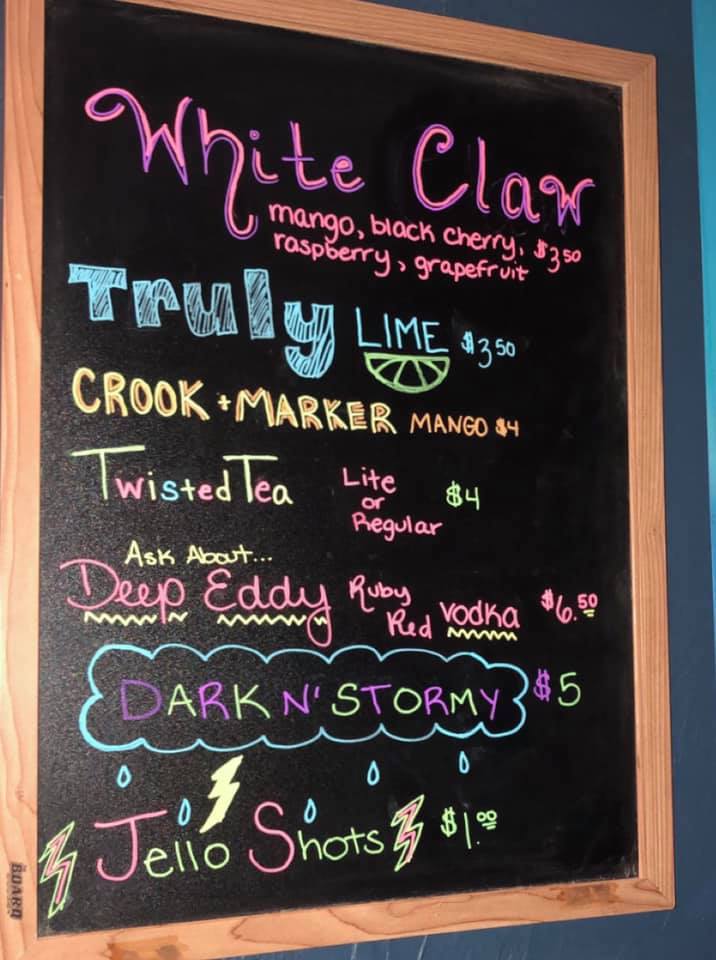 White Claw
mango, black cherry, $3.50
raspberry, grapefruit
Truly LIME $3.50
CROOK + MARKER MANGO $4
Twisted Tea Lite or Regular $4
Ask About...
Deep Eddy Ruby Red vodka $6.50
DARK N' STORMY $5
Jello Shots $1.00
BOARD